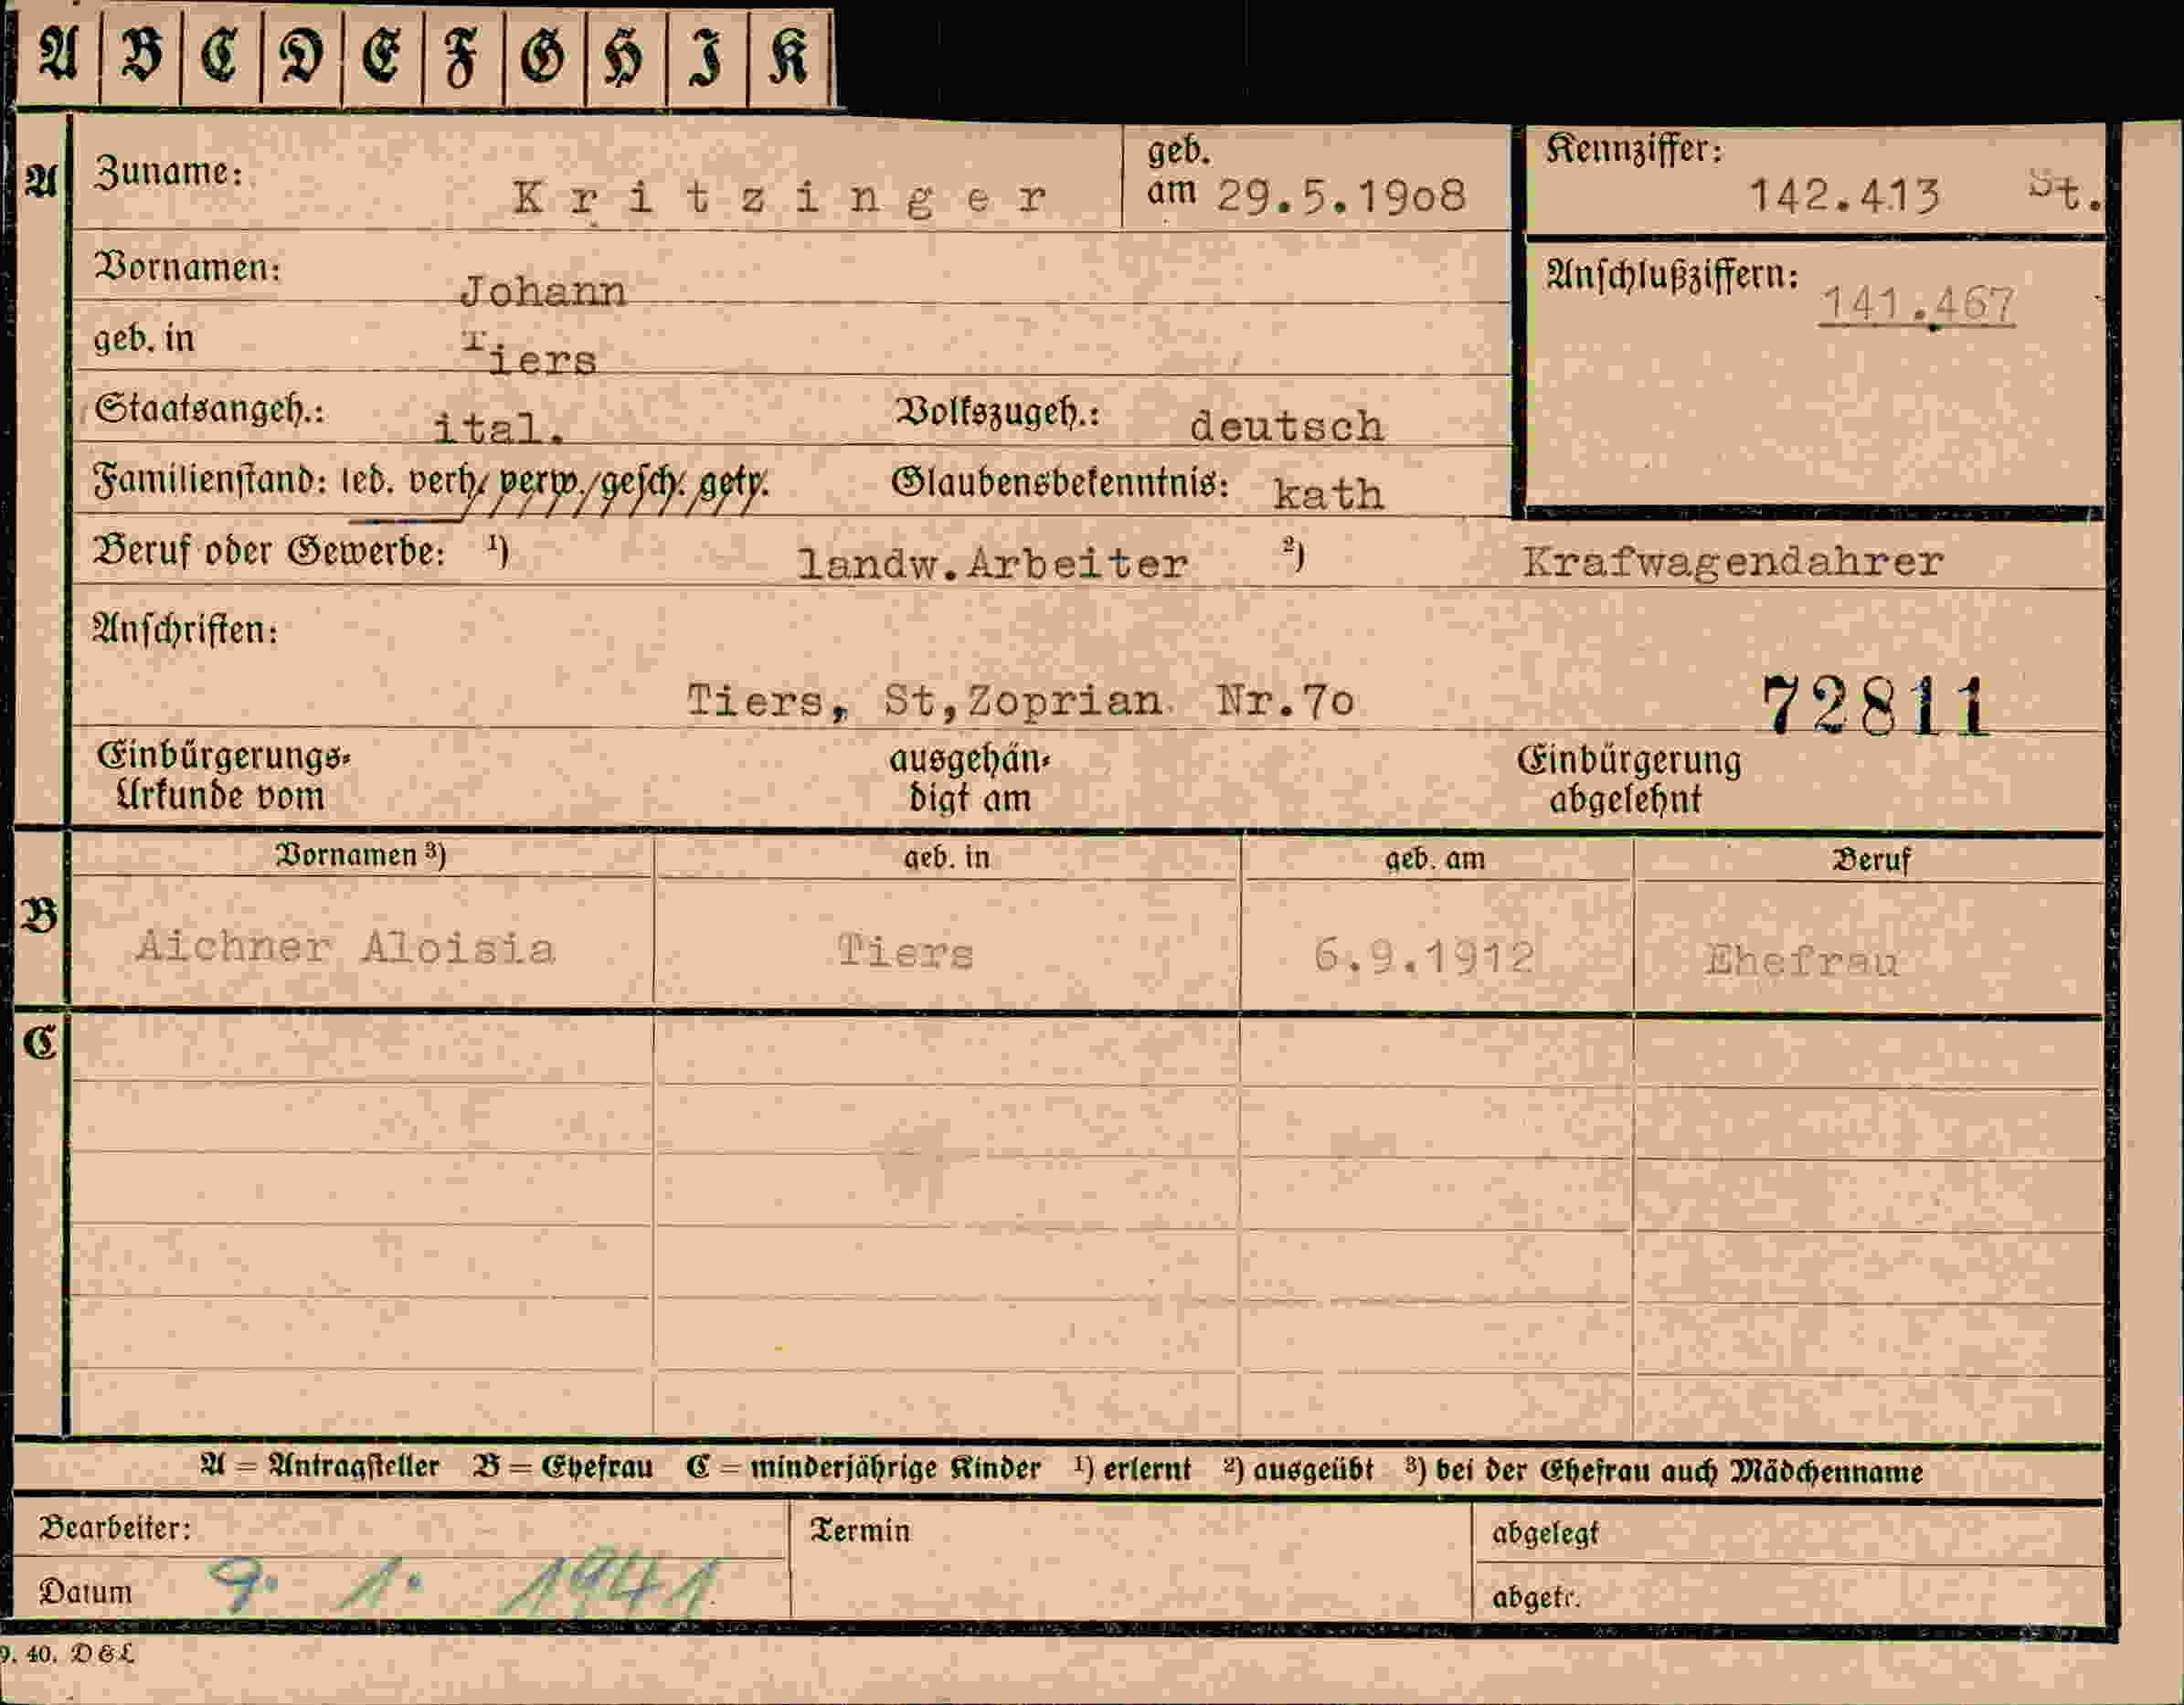 A B C D E F G H I K
A Zuname: Kritzinger geb. am 29.5.1908 Kennziffer: 142.413 St.
Vornamen: Johann Anschlußziffern: 141.467
geb. in Tiers
Staatsangeh.: ital. Volkszugeh.: deutsch
Familienstand: led. verh. verw. gesch. getr. Glaubensbekenntnis: kath
Beruf oder Gewerbe: 1) landw.Arbeiter 2) Krafwagendahrer
Anschriften:
Tiers, St,Zoprian Nr.70 72811
Einbürgerungs- ausgehän- Einbürgerung
Urkunde vom digt am abgelehnt
Vornamen 3) geb. in geb. am Beruf
B Aichner Aloisia Tiers 6.9.1912 Ehefrau
C
A = Antragsteller B = Ehefrau C = minderjährige Kinder 1) erlernt 2) ausgeübt 3) bei der Ehefrau auch Mädchenname
Bearbeiter: Termin abgelegt
Datum 9. 1. 1941 abgetr.
9. 40. D & L